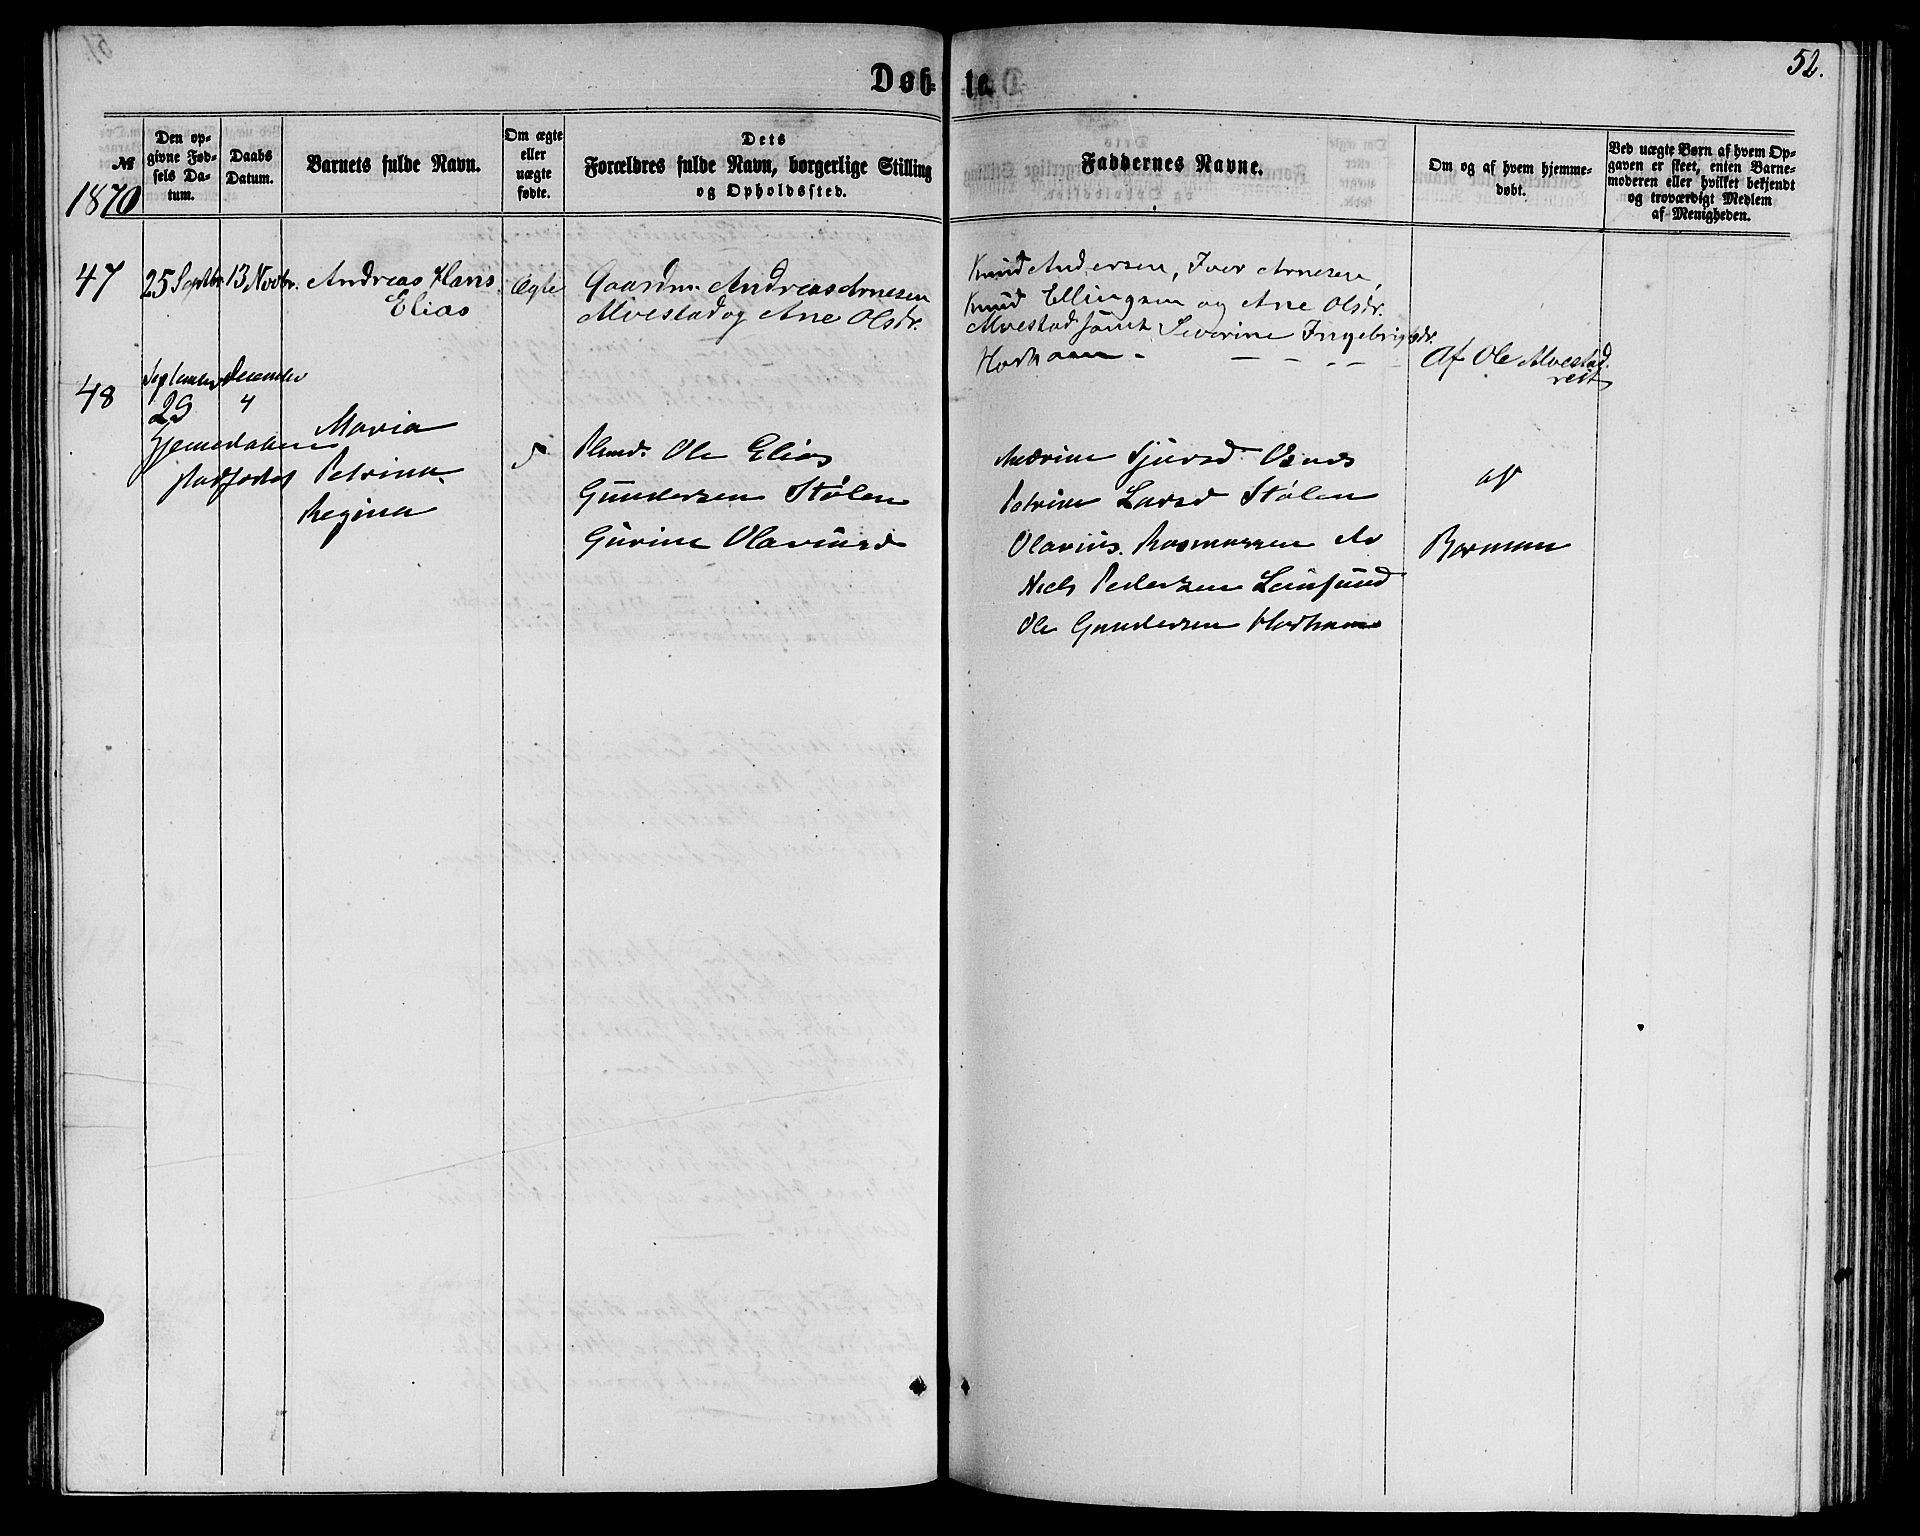 Døbte
52.
№
1870
Den op-
givne Fød-
sels Da-
tum.
Daabs
Datum.
Barnets fulde Navn.
Om ægte
eller
uægte
fødte.
Dets
Forældres fulde Navn, borgerlige Stilling
og Opholdssted.
Faddernes Navne.
Om og af hvem hjemme-
døbt.
Ved uægte Børn af hvem Op-
gaven er skeet, enten Barne-
moderen eller hvilket bekjendt
og troværdigt Medlem
af Menigheden.
47
25 Septbr.
13 Novbr.
Andreas Hans
Elias
Ægte
Gaardm. Andreas Arnesen
Alvestad og Ane Olsdr.
Knud Andersen, Iver Arnesen,
Knud Ellingsen og Ane Olsdr.
Alvestad samt Severine Ingebrigtsdr.
Horhaven - - - - -
Af Ole Alvestad
48
September
29
December
4
Maria
Petrina
Regina
Ole Elias
Gundersen Stølen
Gurine Olavusd
Petrine Larsd Stølen
Olavius Rasmussen
Niels Pedersen Leinsund
Ole Gundersen
af